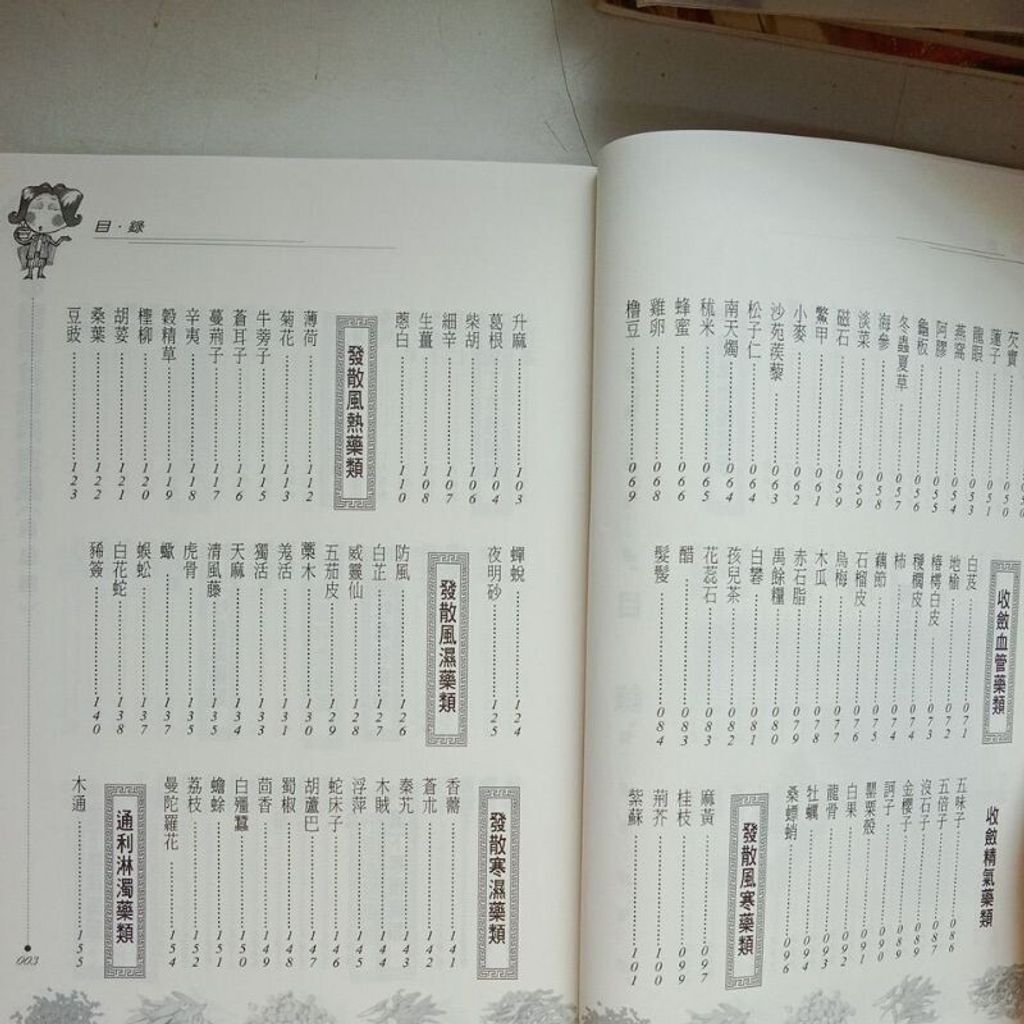 芡實 050
蓮子 051
龍眼 053
燕窩 054
阿膠 055
龜板 056
冬蟲夏草 057
海參 058
淡菜 059
磁石 059
鱉甲 061
小麥 062
沙苑蒺藜 063
松子仁 064
南天燭 064
秫米 065
蜂蜜 066
雞卵 068
櫓豆 069
收斂血管藥類
白芨 071
地榆 072
椿樗白皮 073
椶櫚皮 074
柿 074
藕節 075
石榴皮 076
烏梅 077
木瓜 078
赤石脂 079
禹餘糧 080
白礬 081
孩兒茶 082
花蕊石 083
醋 083
髮髲 084
收斂精氣藥類
五味子 086
五倍子 087
沒石子 089
金櫻子 089
訶子 090
罌粟殼 091
白果 092
龍骨 093
牡蠣 094
桑螵蛸 096
發散風寒藥類
麻黃 097
桂枝 099
荊芥 100
紫蘇 101
目·錄
升麻 103
葛根 104
柴胡 106
細辛 107
生薑 108
蔥白 110
發散風熱藥類
薄荷 112
菊花 113
牛蒡子 115
蒼耳子 116
蔓荊子 117
辛夷 118
穀精草 119
檉柳 120
胡荽 121
桑葉 122
豆豉 123
蟬蛻 124
夜明砂 125
發散風濕藥類
防風 126
白芷 127
威靈仙 128
五茄皮 129
藁木 130
羌活 131
獨活 133
天麻 134
清風藤 135
虎骨 135
蠍 137
蜈蚣 137
白花蛇 138
豨簽 140
發散寒濕藥類
香薷 141
蒼朮 142
秦艽 143
木賊 144
浮萍 145
蛇床子 146
胡蘆巴 147
蜀椒 148
茴香 149
白殭蠶 150
蟾蜍 151
荔枝 152
曼陀羅花 154
通利淋濁藥類
木通 155
003